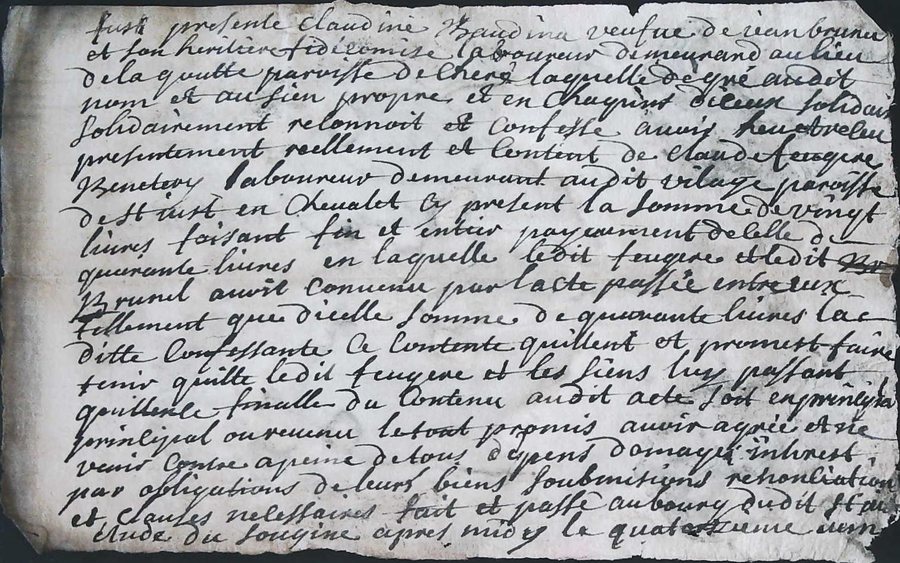 fust presente Claudine Baudina veufue de jean brunu
et son heritiere fideComise laboureur demeurand au lieu
de la goutte paroisse de Cherę laquelle de gré audit
nom et au sien propre et en Chaquins diceux solidair
solidairement reConnoit et Confesse auoir heu et releu
presentement reellement et Contant de Claude feugere
Benetery laboureur demeurant audit vilage paroisse
de st iust en Cheualet Cy present la somme de vingt
liures faisant fin et entier payement de celle de
quarante liures en laquelle ledit feugere et ledit
Brunel auoit Conuenu par lacte passée entre eux
tellement que dicelle somme de quarante liures lac
ditte Confessante Ce Contente quittent et promest faire
tenir quitte ledit feugere et les siens luy passant
quittence finalle du Contenu audit acte soit en principa
principal ou reuenu le tout promis auoir agrée et ne
venir Contre a peine de tous depens domages inthrest
par obligations de leurs biens soubmitions renonciation
et Clauses necessaires fait et passé au bourg dudit st
etude du sousigne apres midy le quatorzieme